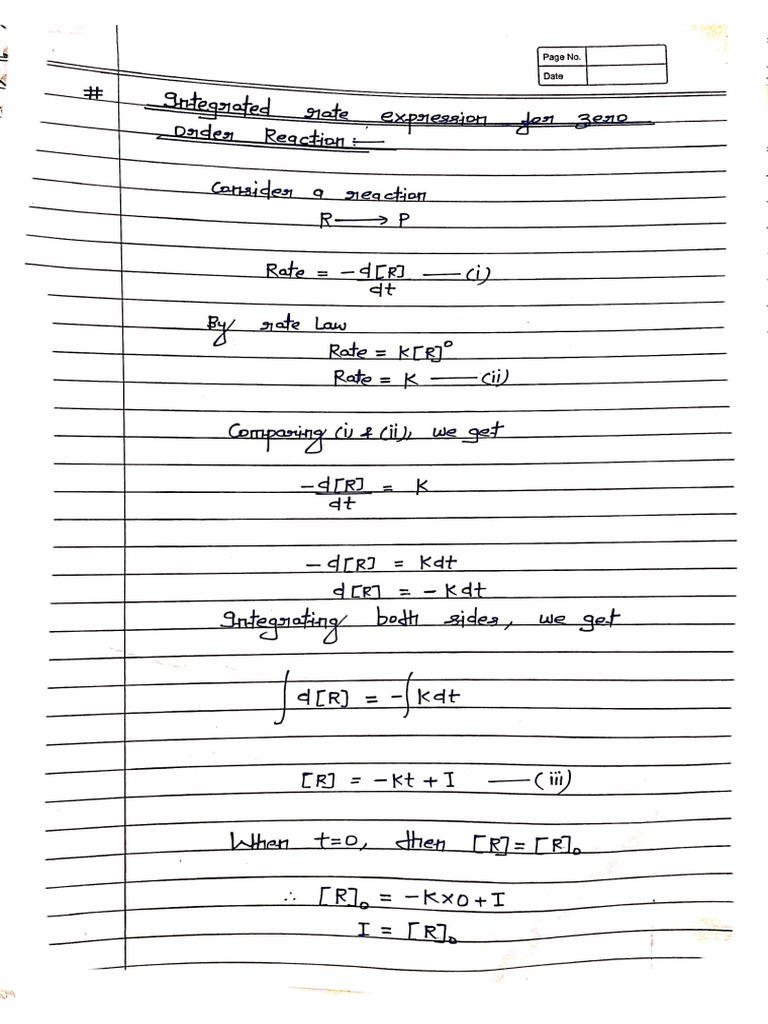 Page No.
Date
# Integrated rate expression for zero
order Reaction :-
Consider a reaction
R ⟶ P
Rate = -d[R]/dt — (i)
By rate Law
Rate = K[R]⁰
Rate = K — (ii)
Comparing (i & (ii), we get
-d[R]/dt = K
-d[R] = Kdt
d[R] = - Kdt
Integrating both sides, we get
∫d[R] = -∫Kdt
[R] = -Kt + I — (iii)
When t=0, then [R] = [R]₀
∴ [R]₀ = -K×0+I
I = [R]₀